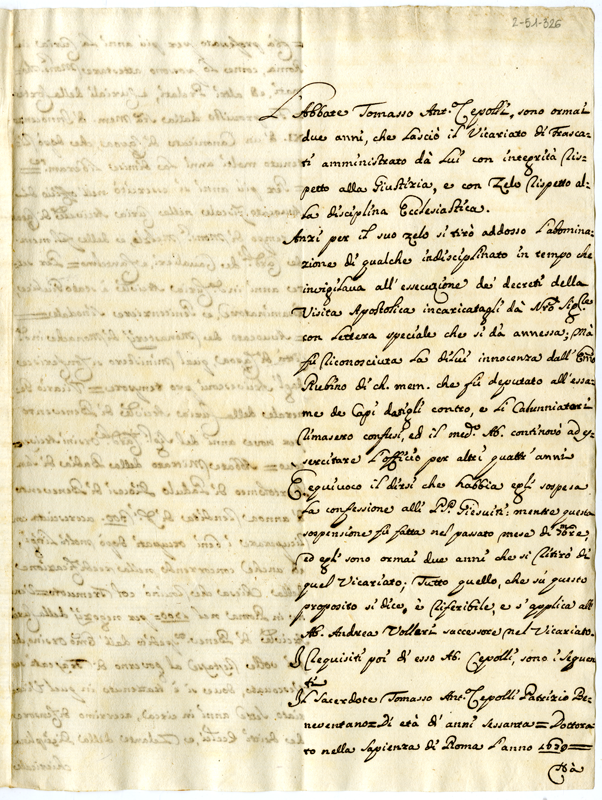 2-51-326
L'Abbate Tomasso Ant.º Cepolli, sono ormai
due anni, che lasciò il Vicariato di Frasca-
ti amministrato dà lui con integrità ris-
petto alla Giustizia, e con zelo rispetto al-
la disciplina Ecclesiastica.
Anzi per il suo zelo si tirò addosso l'abomina-
zione di qualche indisciplinato in tempo che
invigilava all'essecuzione de' decreti della
Visita Apostolica incaricatagli dà
con lettera speciale che si dà annessa; mà
fù riconosciuta la di lui innocenza dall'
Rubino di ch. mem. che fù deputato all'essa-
me de Capi datigli contro, e li Calunniatori
rimasero confusi, ed il med.º Ab. continovò ad es-
sercitare l'officio per altri quattr'anni
È equivoco il dirsi che habbia egli sospesa
la confessione alli P.P. Giesuiti: mentre questa
sospensione fù fatta nel passato mese di
ed egli sono ormai due anni che si ritirò di
quel Vicariato; Tutto quello, che sù questo
proposito si dice, è riferibile, e s'applica all'
Ab. Andrea Volleri successore nel Vicariato.
I requisiti poi di esso Ab. Cepolli, sono i seguen-
ti
Il Sacerdote Tomasso Ant.º Cepolli Patrizio Be-
neventano = Di età di anni sessanta = Dottora-
to nella Sapienza di Roma l'anno 1679 =
Hà